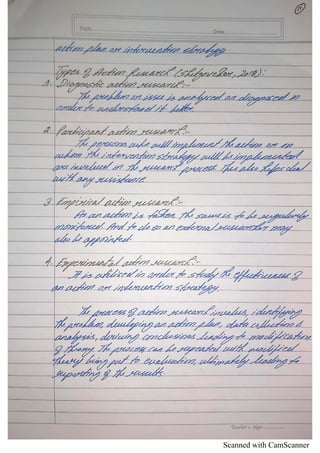 (11)
Topic
Date
action plan or intervention strategy.
Types of Action Research (Shitzvrdan, 2018):
1. Diagnostic action research:-
The problem or issue is analysed or diagnosed in
order to understand it better.
2. Participant action research:-
The persons who will implement the action or on
whom the intervention strategy will be implemented
are involved in the research process. This also helps deal
with any resistence.
3. Empirical action research:-
As an action is taken, the same is to be regularly
monitored. And to do so an external researcher may
also be appointed.
4. Experimental action research:-
It is utilised in order to study the effectiveness of
an action or intervention strategy.
The process of action research involves, identifying
the problem, developing an action plan, data collection &
analysis, deriving conclusions leading to modification
of theory. The process can be repeated with modified
theory being put to evaluation, ultimately leading to
reporting of the results.
Teacher's Sign
Scanned with CamScanner